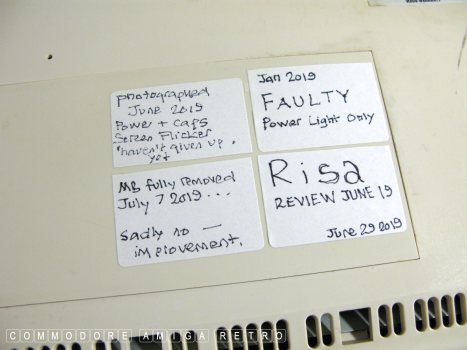 photographed
June 2019
Power + Caps
Screen Flicker
"haven't given up
yet
Jan 2019
FAULTY
Power Light Only
MB fully removed
July 7 2019 ...
Sadly no —
improvement.
Risa
REVIEW JUNE 19
June 29 2019
COMMODORE AMIGA RETRO